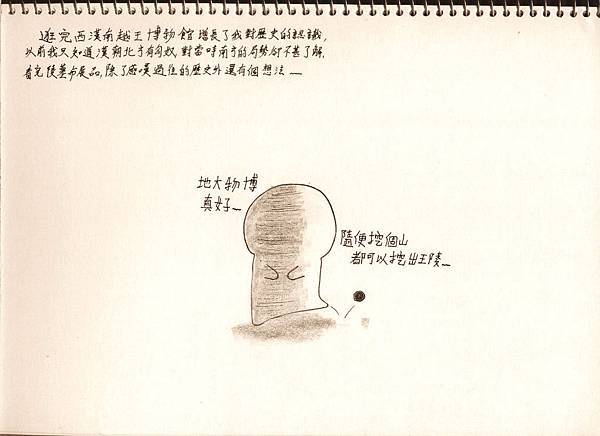 逛完西漢南越王博物館增長了我對歷史的認識,
以前我只知道漢朝北方有匈奴,對當時南方的局勢卻不甚了解,
看完後墓布展品,除了感嘆過往的歷史外還有個想法 ……
地大物博
真好……
隨便挖個山
都可以挖出王陵……